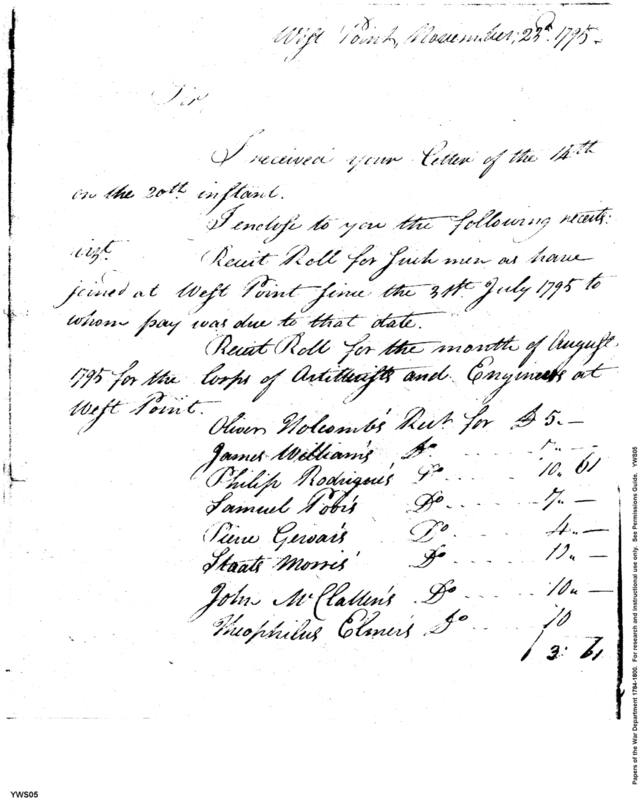 West Point, November, 23d. 1795.
Sir,
I received your letter of the 14th
on the 20th instant.
I enclose to you the following receits.
vizt. Receit Roll for such men as have
joined at West Point since the 31st. July 1795 to
whom pay was due to that date.
Receit Roll for the month of August
1795 for the Corps of Artillerists and Engineers at
West Point.
Oliver Holcomb's Rect for $ 5. —
James William's Do 7 " —
Philip Rodrigue's Do 10 " 61
Samuel Do 7 " —
Pierre Gervais Do 4 " —
Staats Morris' Do " —
John McClallen's Do 10 " —
Theophilus Elmer's Do 10
3 " 61
Papers of the War Department 1784-1800. For research and instructional use only. See Permissions Guide. YWS05
YWS05